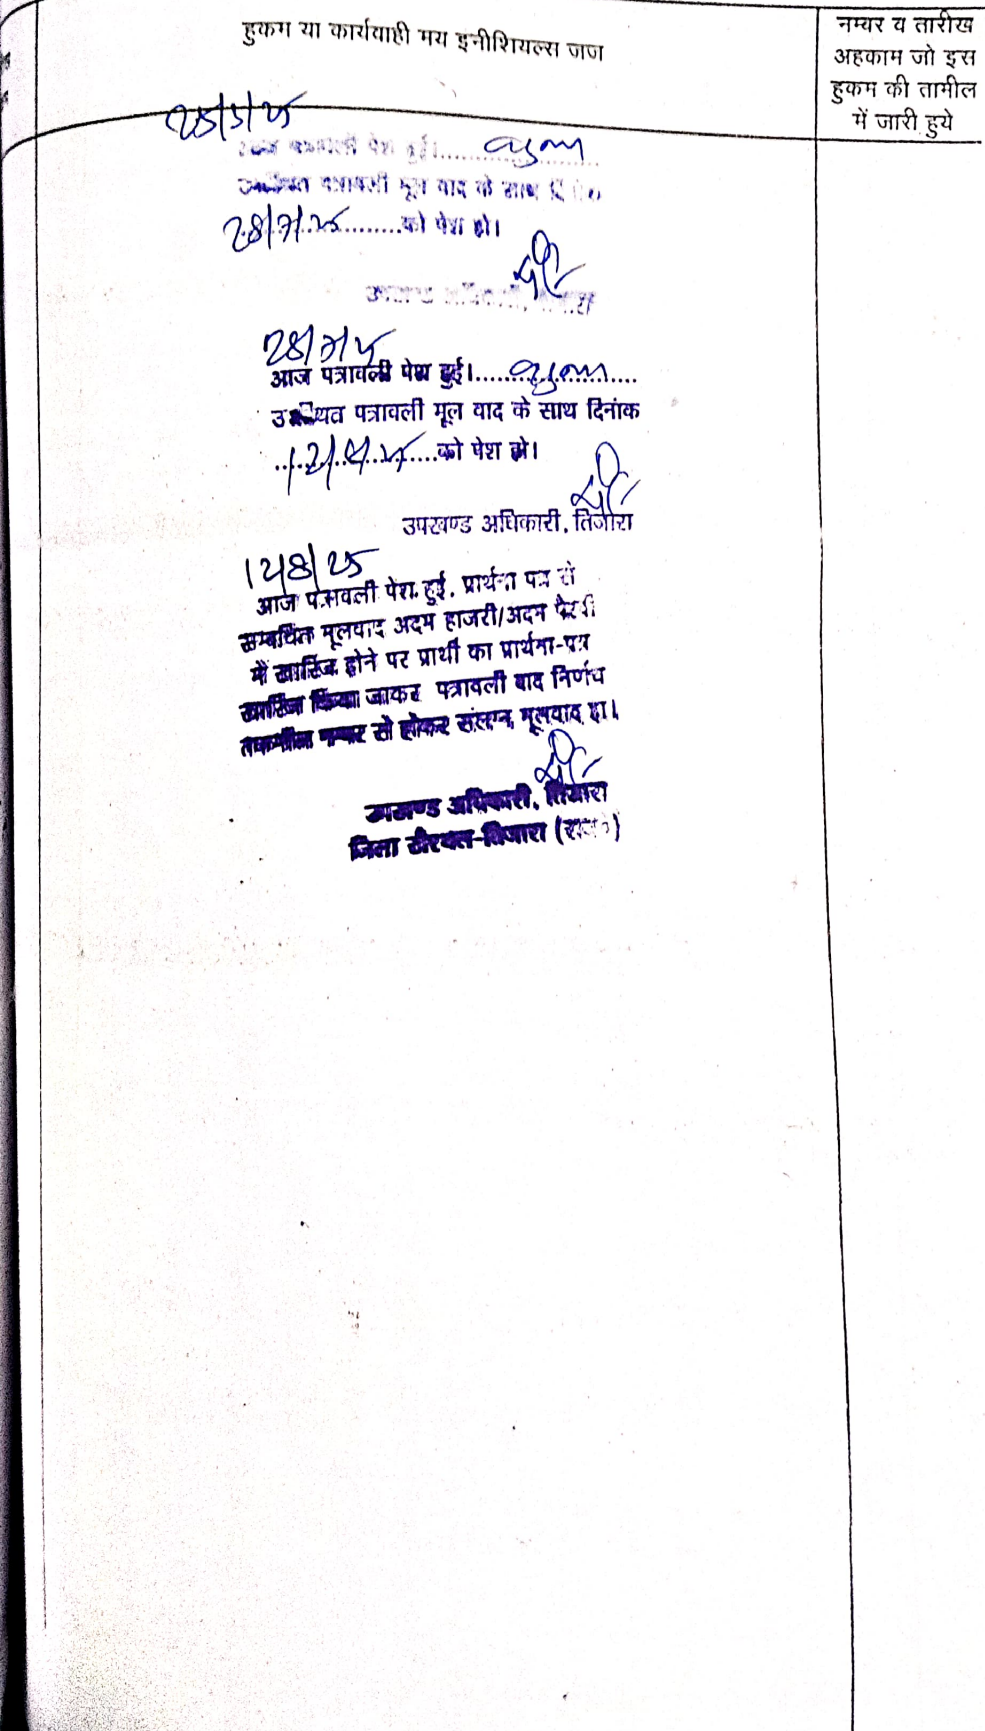 हुकम या कार्यवाही मय इनीशियल्स जज
नम्बर व तारीख
अहकाम जो इस
हुकम की तामील
में जारी हुये
पत्रावली पेश हुई।
पत्रावली मूल वाद के साथ
28/7/25 को पेश हो।
28/7/25
आज पत्रावली पेश हुई।
उपस्थित पत्रावली मूल वाद के साथ दिनांक
12/8/25 को पेश हो।
उपखण्ड अधिकारी, तिजारा
12/8/25
आज पत्रावली पेश हुई. प्रार्थना पत्र से
सम्बंधित मूलवाद अदम हाजरी/अदम पैरवी
में खारिज होने पर प्रार्थी का प्रार्थना-पत्र
खारिज किया जाकर पत्रावली बाद निर्णय
नम्बर से होकर संलग्न मूलवाद हो।
उपखण्ड अधिकारी, तिजारा
जिला खैरथल-तिजारा (राज०)